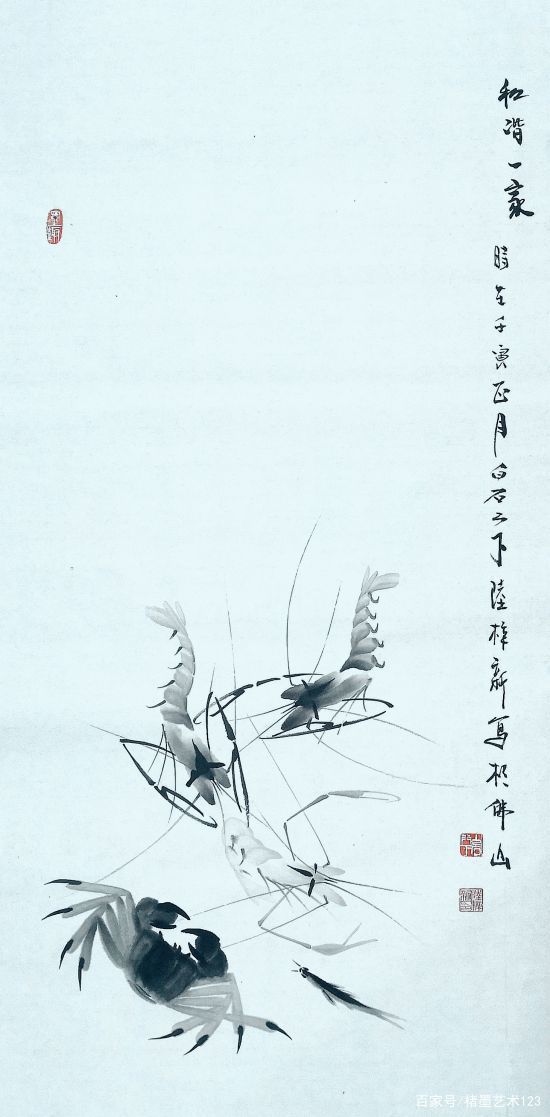 和谐一家
時在壬寅正月白石门下陸梓新写於佛山
百家号/楮墨艺术123